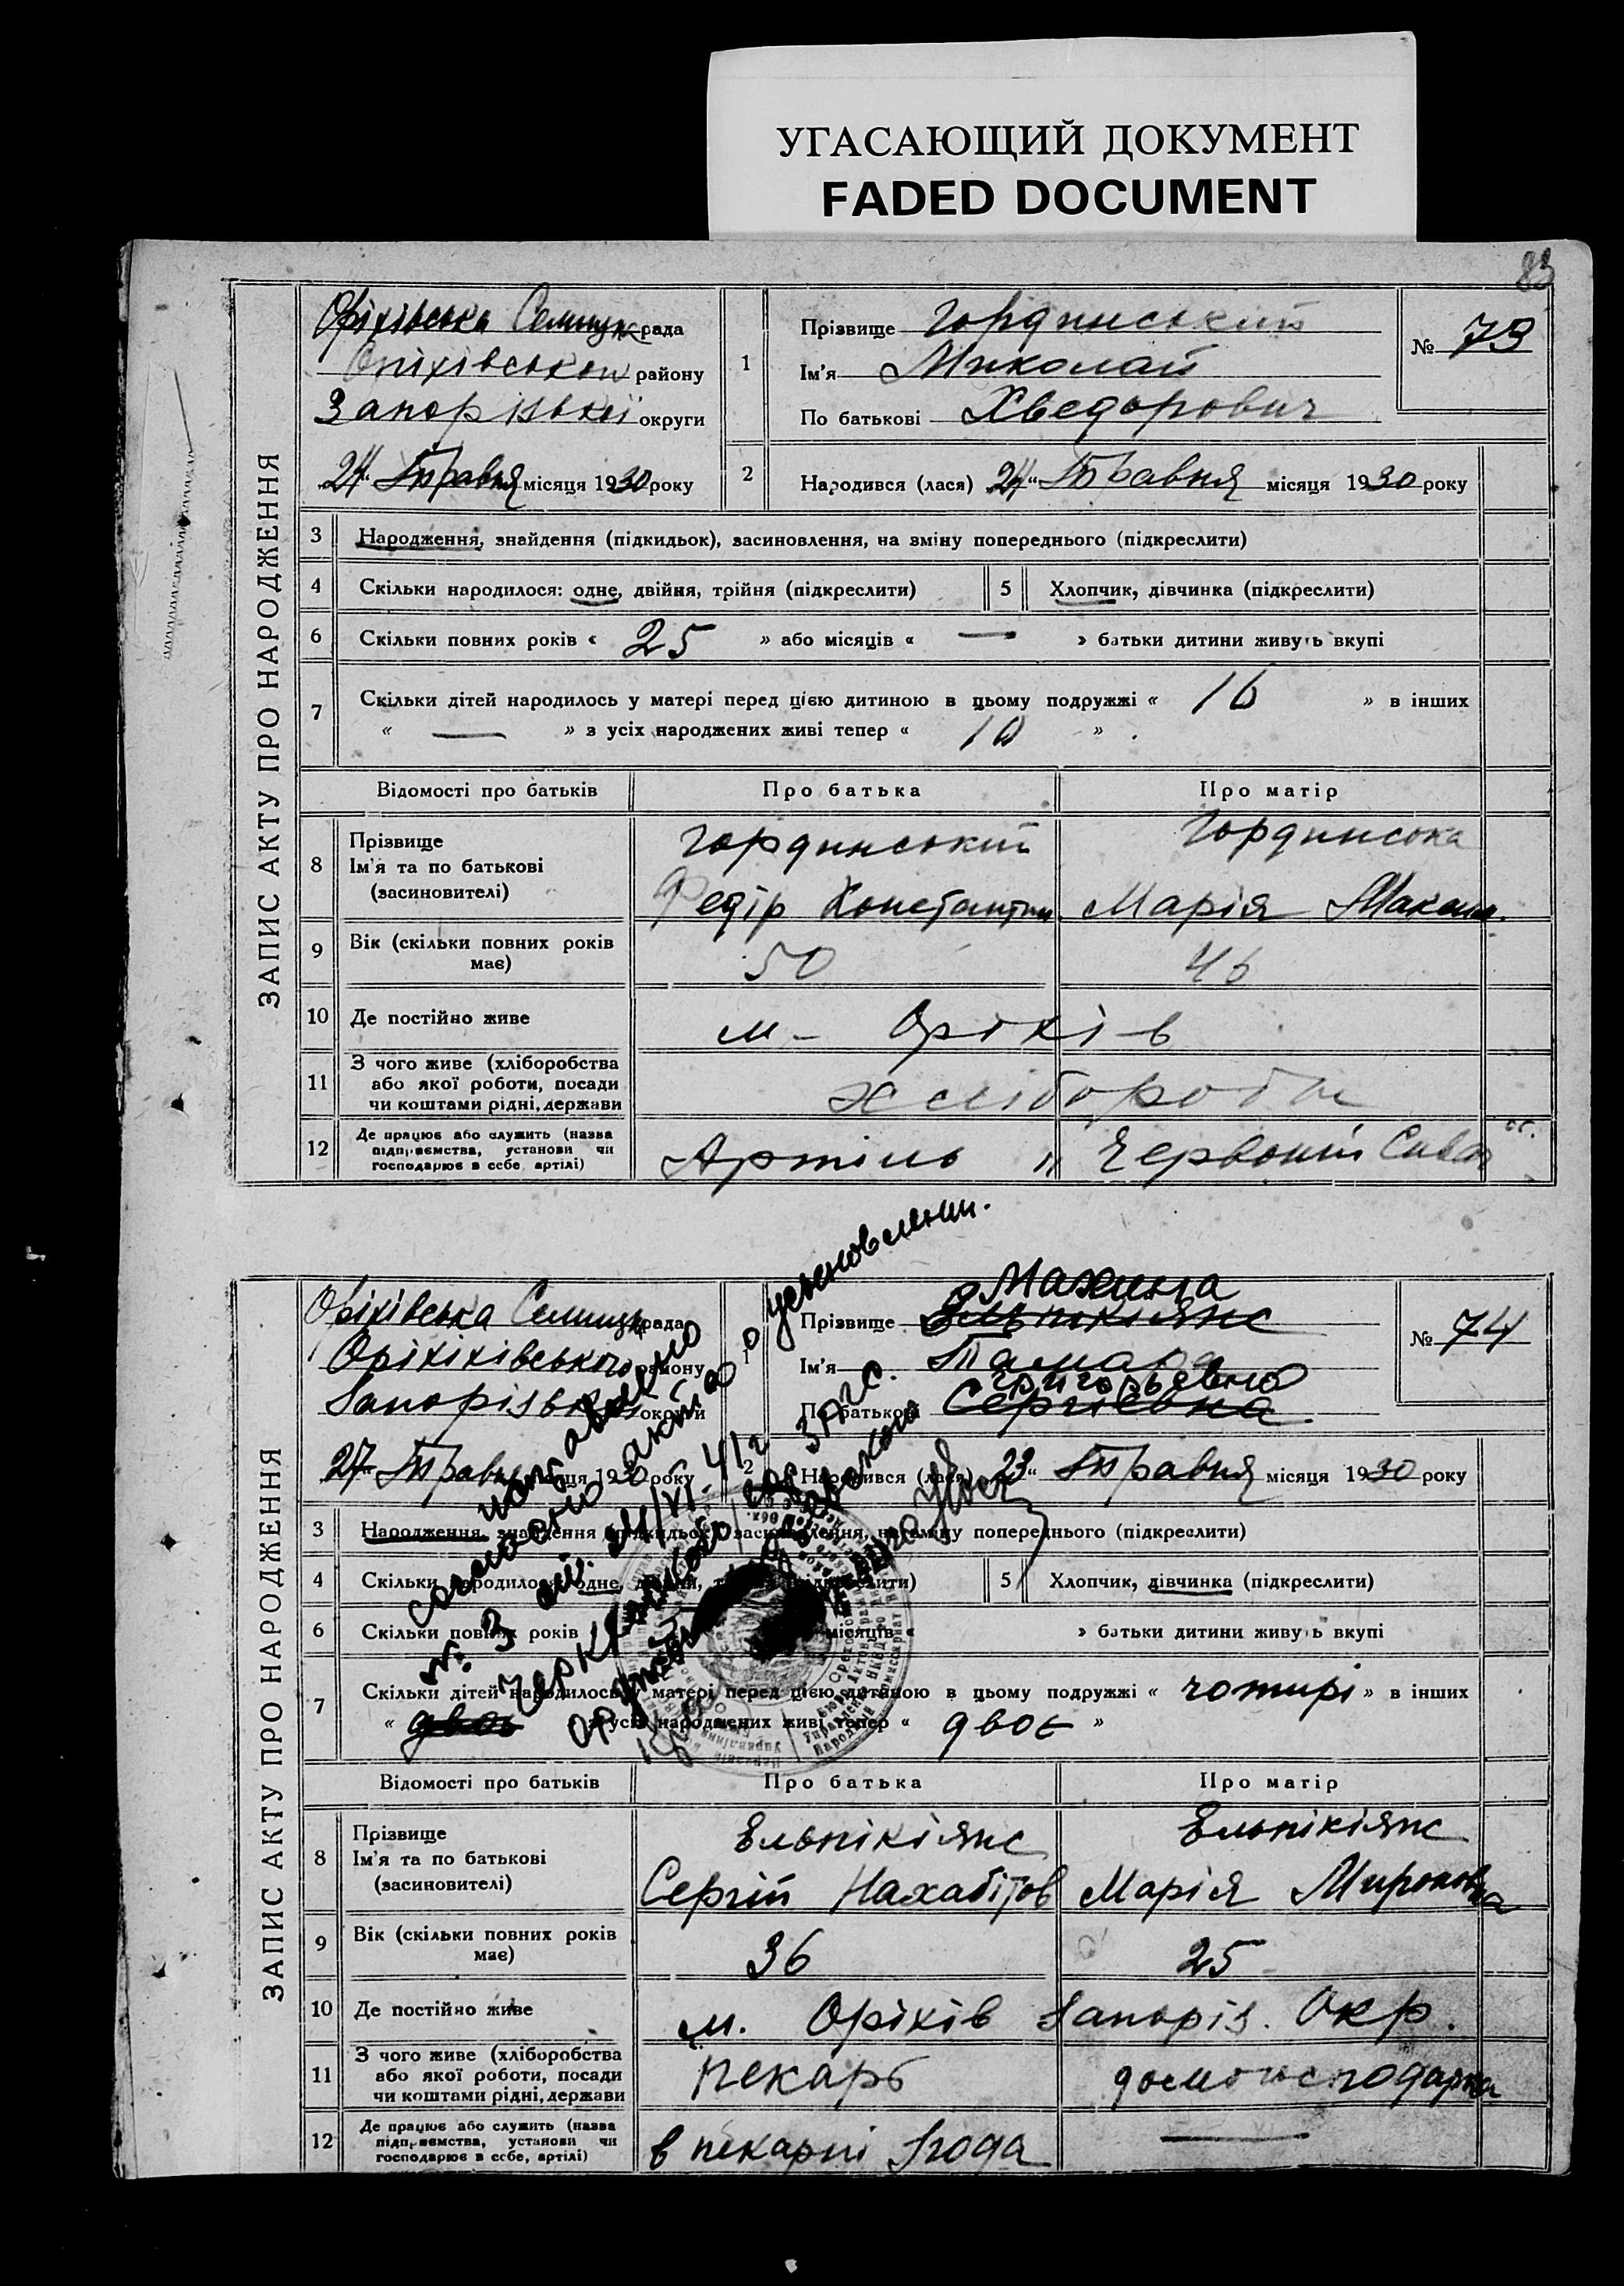 УГАСАЮЩИЙ ДОКУМЕНТ
FADED DOCUMENT
83
ЗАПИС АКТУ ПРО НАРОДЖЕННЯ
Оріхівська Селищн рада
Оріхівського району
Запорізької округи
„24“ Травня місяця 1930 року
1
Прізвище Гординський
Ім'я Миколай
По батькові Хведорович
№ 73
2
Народився (лася) „24“ Травня місяця 1930 року
3 Народження, знайдення (підкидьок), засиновлення, на зміну попереднього (підкреслити)
4 Скільки народилося: одне, двійня, трійня (підкреслити) 5 Хлопчик, дівчинка (підкреслити)
6 Скільки повних років « 25 » або місяців « — » батьки дитини живуть вкупі
7 Скільки дітей народилось у матері перед цією дитиною в цьому подружжі « 16 » в інших
« — » з усіх народжених живі тепер « 10 »
Відомості про батьків Про батька Про матір
8 Прізвище
Ім'я та по батькові
(засиновителі)
Гординський
Федір Константин.
Гординська
Марія Максим.
9 Вік (скільки повних років має) 50 46
10 Де постійно живе м- Оріхів
11 З чого живе (хліборобства
або якої роботи, посади
чи коштами рідні, держави
хлібороби
12 Де працює або служить (назва
підприємства, установи чи
господарює в себе, артілі)
Артіль „Червоний
ЗАПИС АКТУ ПРО НАРОДЖЕННЯ
Оріхівська Селищн рада
Оріхіхівського району
Запорізької округи
„27“ Травня місяця 1930 року
1
Махина
Прізвище Ельпікіянс
Ім'я Тамара
Григорьевна
По батькові Сергіевна
№ 74
2
Народився (лася) „23“ Травня місяця 1930 року
исправлено
согласно акта о усыновлении.
№ 3 от 24/VI-41 г
ЗАГС.
3 Народження, знайдення (підкидьок), засиновлення, на зміну попереднього (підкреслити)
4 Скільки народилося: одне, двійня, трійня (підкреслити) 5 Хлопчик, дівчинка (підкреслити)
6 Скільки повних років місяців « » батьки дитини живуть вкупі
7 Скільки дітей народилось у матері перед цією дитиною в цьому подружжі « чотирі » в інших
« двоє » з усіх народжених живі тепер « двоє »
Відомості про батьків Про батька Про матір
8 Прізвище
Ім'я та по батькові
(засиновителі)
Ельпікіянс
Сергій Нахабітов
Ельпікіянс
Марія Мироновна
9 Вік (скільки повних років має) 36 25
10 Де постійно живе м. Оріхів Запоріз. Окр.
11 З чого живе (хліборобства
або якої роботи, посади
чи коштами рідні, держави
пекарь домогосподарка
12 Де працює або служить (назва
підприємства, установи чи
господарює в себе, артілі)
в пекарні —